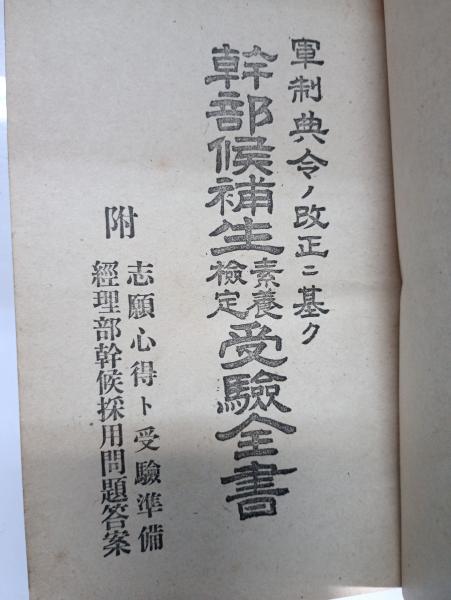 軍制典令ノ改正ニ基ク
幹部候補生素養檢定受驗全書
附
志願心得ト受驗準備
經理部幹候採用問題答案